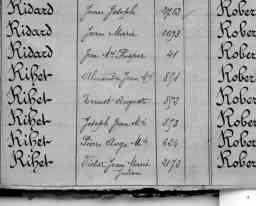 Ridard Jean Joseph Rober
Ridard Jean Marie 1098 Rober
Ridard Jean Mie Prosper 41 Rober
Rihet Jean Rober
Rihet Ernest Auguste 892 Rober
Rihet Joseph Jean Mie 893 Rober
Rihet Pierre Ange Mie 624 Rober
Rihet Victor Jean Marie 2170 Rober
Julien